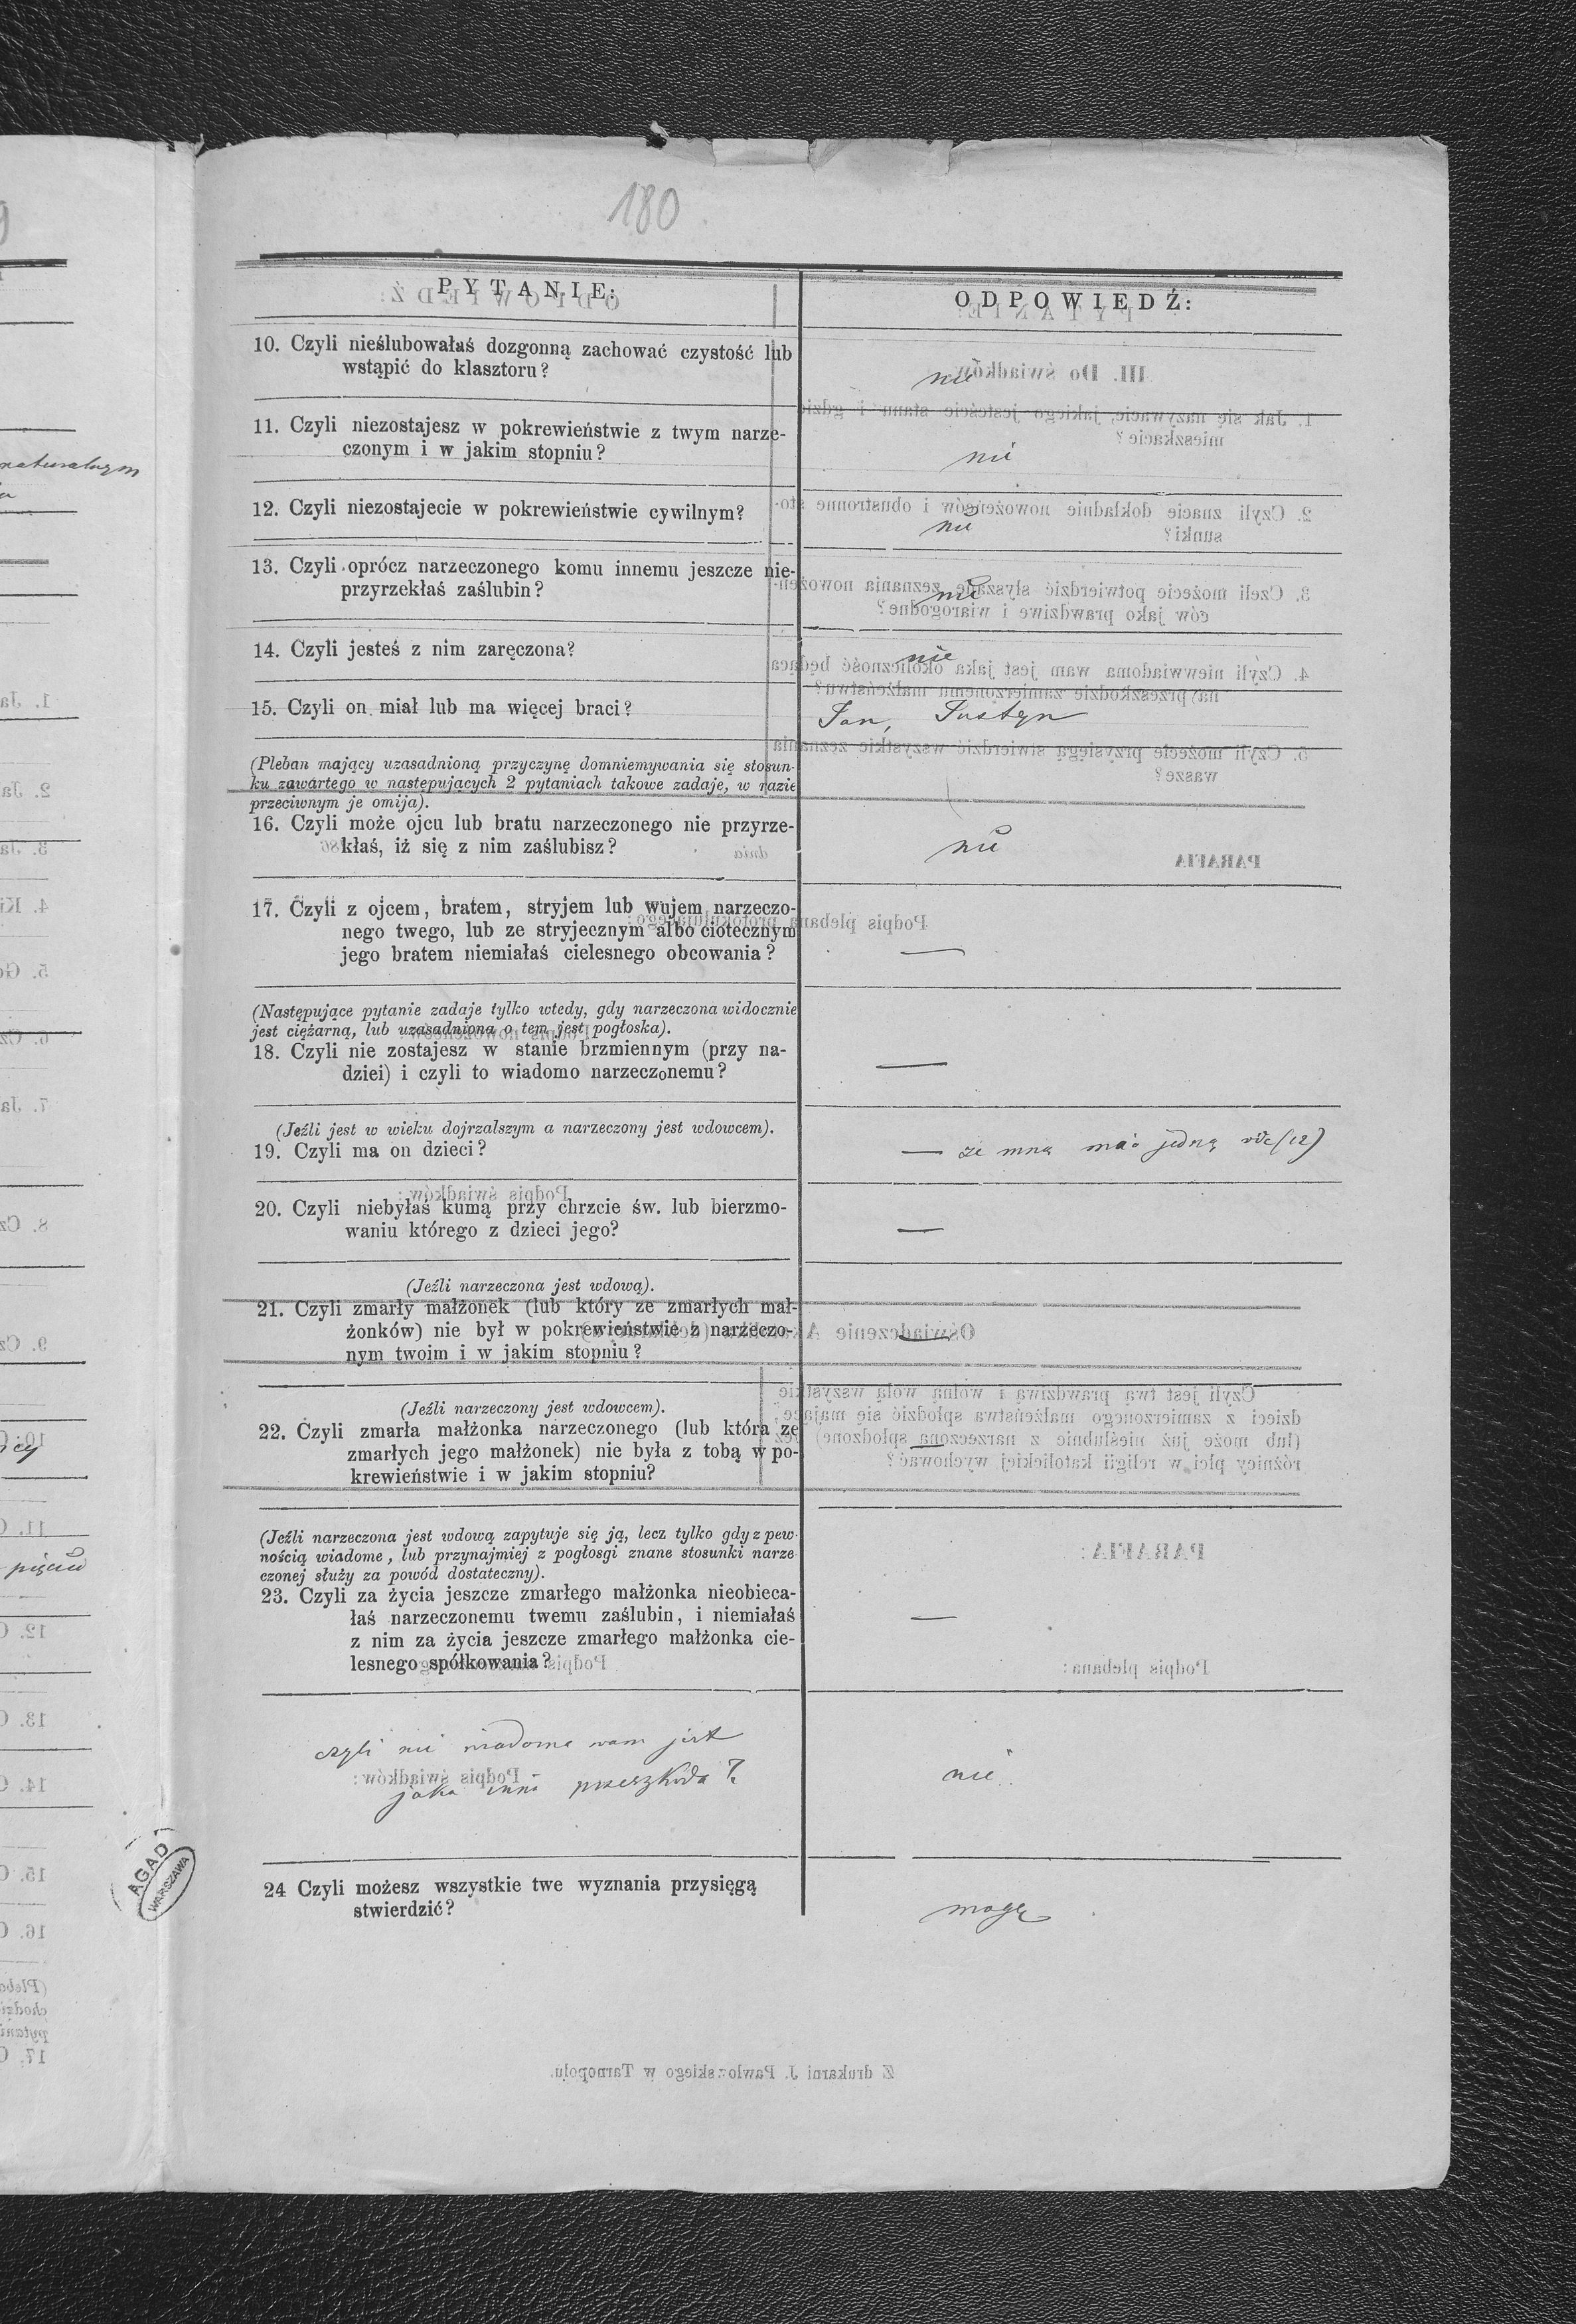 180
PYTANIE:
ODPOWIEDŹ:
10. Czyli nieślubowałaś dozgonną zachować czystość lub
wstąpić do klasztoru?
nie
11. Czyli niezostajesz w pokrewieństwie z twym narze-
czonym i w jakim stopniu?
nie
12. Czyli niezostajecie w pokrewieństwie cywilnym?
nie
13. Czyli oprócz narzeczonego komu innemu jeszcze nie-
przyrzekłaś zaślubin?
nie
14. Czyli jesteś z nim zaręczona?
nie
15. Czyli on miał lub ma więcej braci?
Jan, Justyn
(Pleban mający uzasadnioną przyczynę domniemywania się stosun-
ku zawartego w następujących 2 pytaniach takowe zadaje, w razie
przeciwnym je omija).
16. Czyli może ojcu lub bratu narzeczonego nie przyrze-
kłaś, iż się z nim zaślubisz?
nie
17. Czyli z ojcem, bratem, stryjem lub wujem narzeczo-
nego twego, lub ze stryjecznym albo ciotecznym
jego bratem niemiałaś cielesnego obcowania?
—
(Następujące pytanie zadaje tylko wtedy, gdy narzeczona widocznie
jest ciężarną, lub uzasadniona o tem jest pogłoska).
18. Czyli nie zostajesz w stanie brzmiennym (przy na-
dziei) i czyli to wiadomo narzeczonemu?
—
(Jeźli jest w wieku dojrzalszym a narzeczony jest wdowcem).
19. Czyli ma on dzieci?
— ze mną ma jedną (12)
20. Czyli niebyłaś kumą przy chrzcie św. lub bierzmo-
waniu którego z dzieci jego?
—
(Jeźli narzeczona jest wdową).
21. Czyli zmarły małżonek (lub który ze zmarłych mał-
żonków) nie był w pokrewieństwie z narzeczo-
nym twoim i w jakim stopniu?
—
(Jeźli narzeczony jest wdowcem).
22. Czyli zmarła małżonka narzeczonego (lub która ze
zmarłych jego małżonek) nie była z tobą w po-
krewieństwie i w jakim stopniu?
—
(Jeźli narzeczona jest wdową zapytuje się ją, lecz tylko gdy z pew-
nością wiadome, lub przynajmiej z pogłosgi znane stosunki narze
czonej służy za powód dostateczny).
23. Czyli za życia jeszcze zmarłego małżonka nieobieca-
łaś narzeczonemu twemu zaślubin, i niemiałaś
z nim za życia jeszcze zmarłego małżonka cie-
lesnego spółkowania?
—
czyli nie wiadoma wam jest
jaka inna przeszkoda?
nie
24 Czyli możesz wszystkie twe wyznania przysięgą
stwierdzić?
mogę
AGAD
WARSZAWA